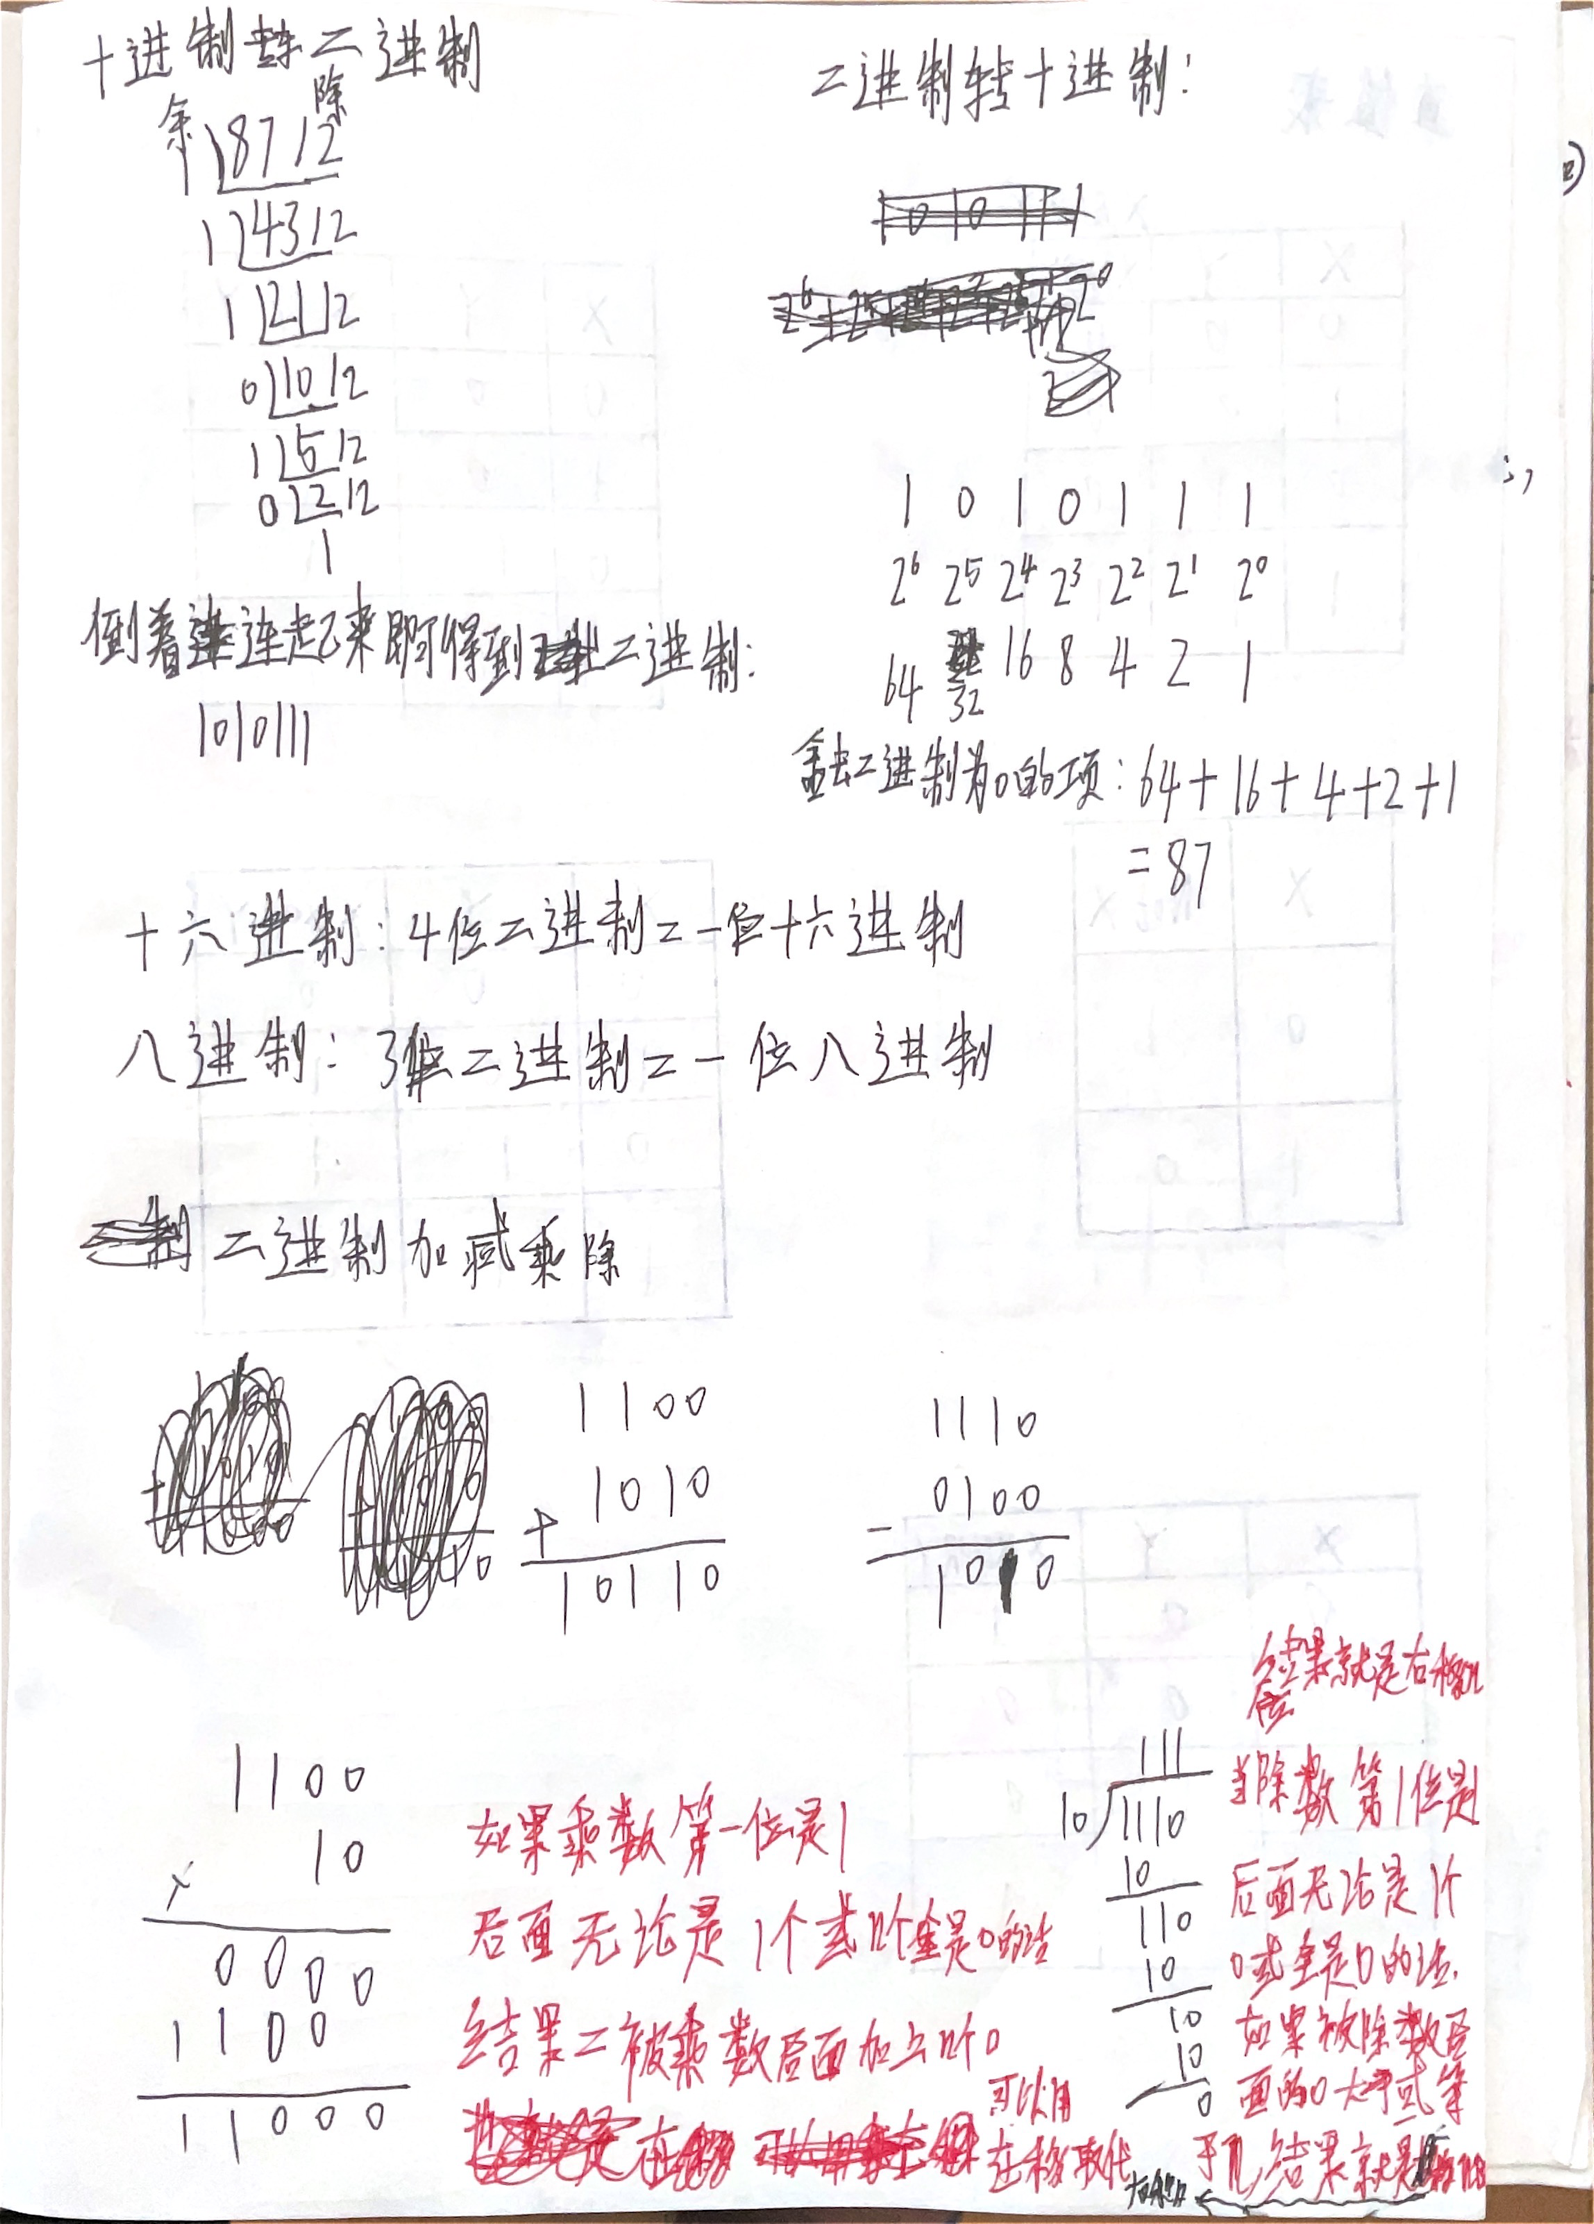 十进制转二进制
余 除
1 87 2
1 43 2
1 21 2
0 10 2
1 5 2
0 2 2
1
倒着连起来即可得到二进制:
1010111
二进制转十进制:
1 0 1 0 1 1 1
2⁶ 2⁵ 2⁴ 2³ 2² 2¹ 2⁰
64 32 16 8 4 2 1
舍去二进制为0的项: 64+16+4+2+1
=87
十六进制: 4位二进制=一位十六进制
八进制: 3位二进制=一位八进制
二进制加减乘除
1100
+ 1010
10110
1110
- 0100
1010
1100
× 10
0000
1100
11000
如果乘数第一位是1
后面无论是1个或n个全是0的话
结果=被乘数后面加上n个0
可以用
左移取代
111
10 1110
10
110
10
10
10
0
结果就是右移n
位
当除数第1位是1
后面无论是1个
0或全是0的话.
如果被除数后
面的0大于或等
于n,结果就是